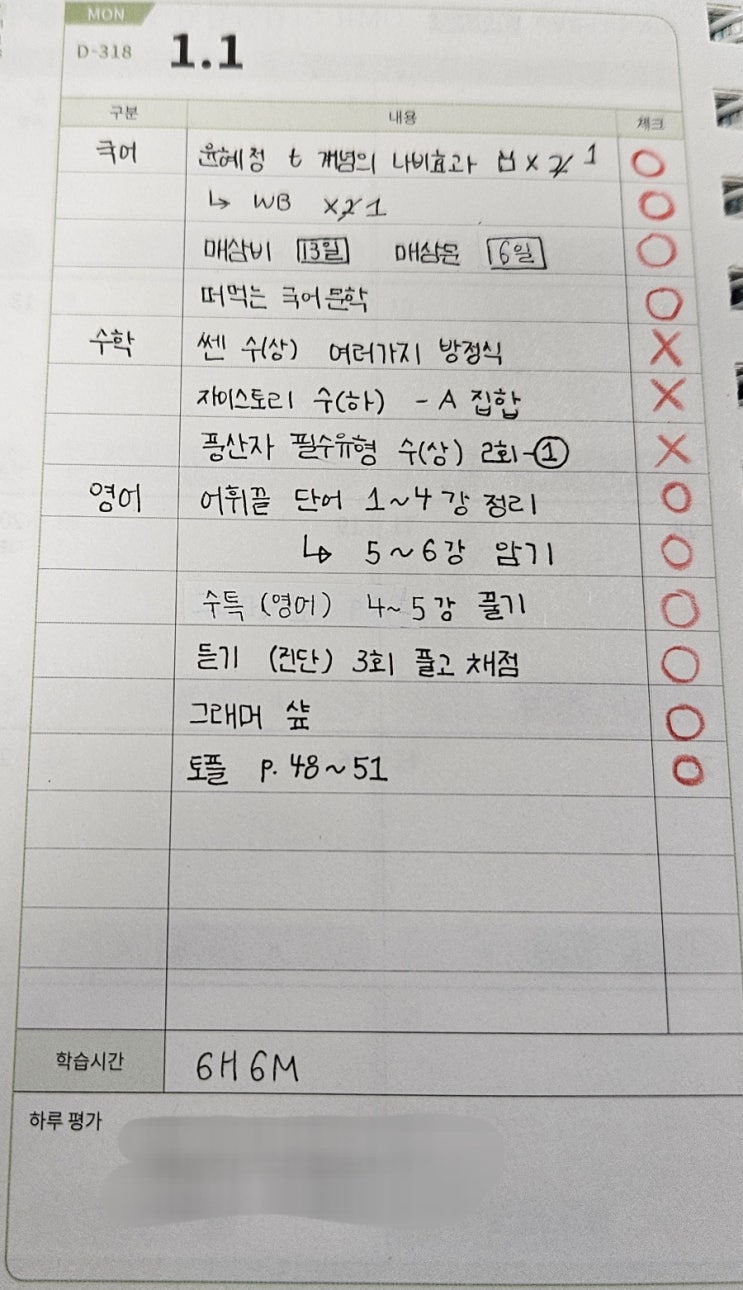 MON
D-318 1.1
구분 내용 체크
국어 윤혜정 t 개념의 나비효과 남 x 2 1 O
↳ WB x 2 1 O
매삼비 13일 매삼문 6일 O
떠먹는 국어문학 O
수학 쎈 수(상) 여러가지 방정식 X
자이스토리 수(하) - A 집합 X
풍산자 필수유형 수(상) 2회-① X
영어 어휘끝 단어 1~4강 정리 O
↳ 5~6강 암기 O
수특 (영어) 4~5강 풀기 O
듣기 (진단) 3회 풀고 채점 O
그래머 샾 O
토플 p. 48~51 O
학습시간 6H 6M
하루 평가